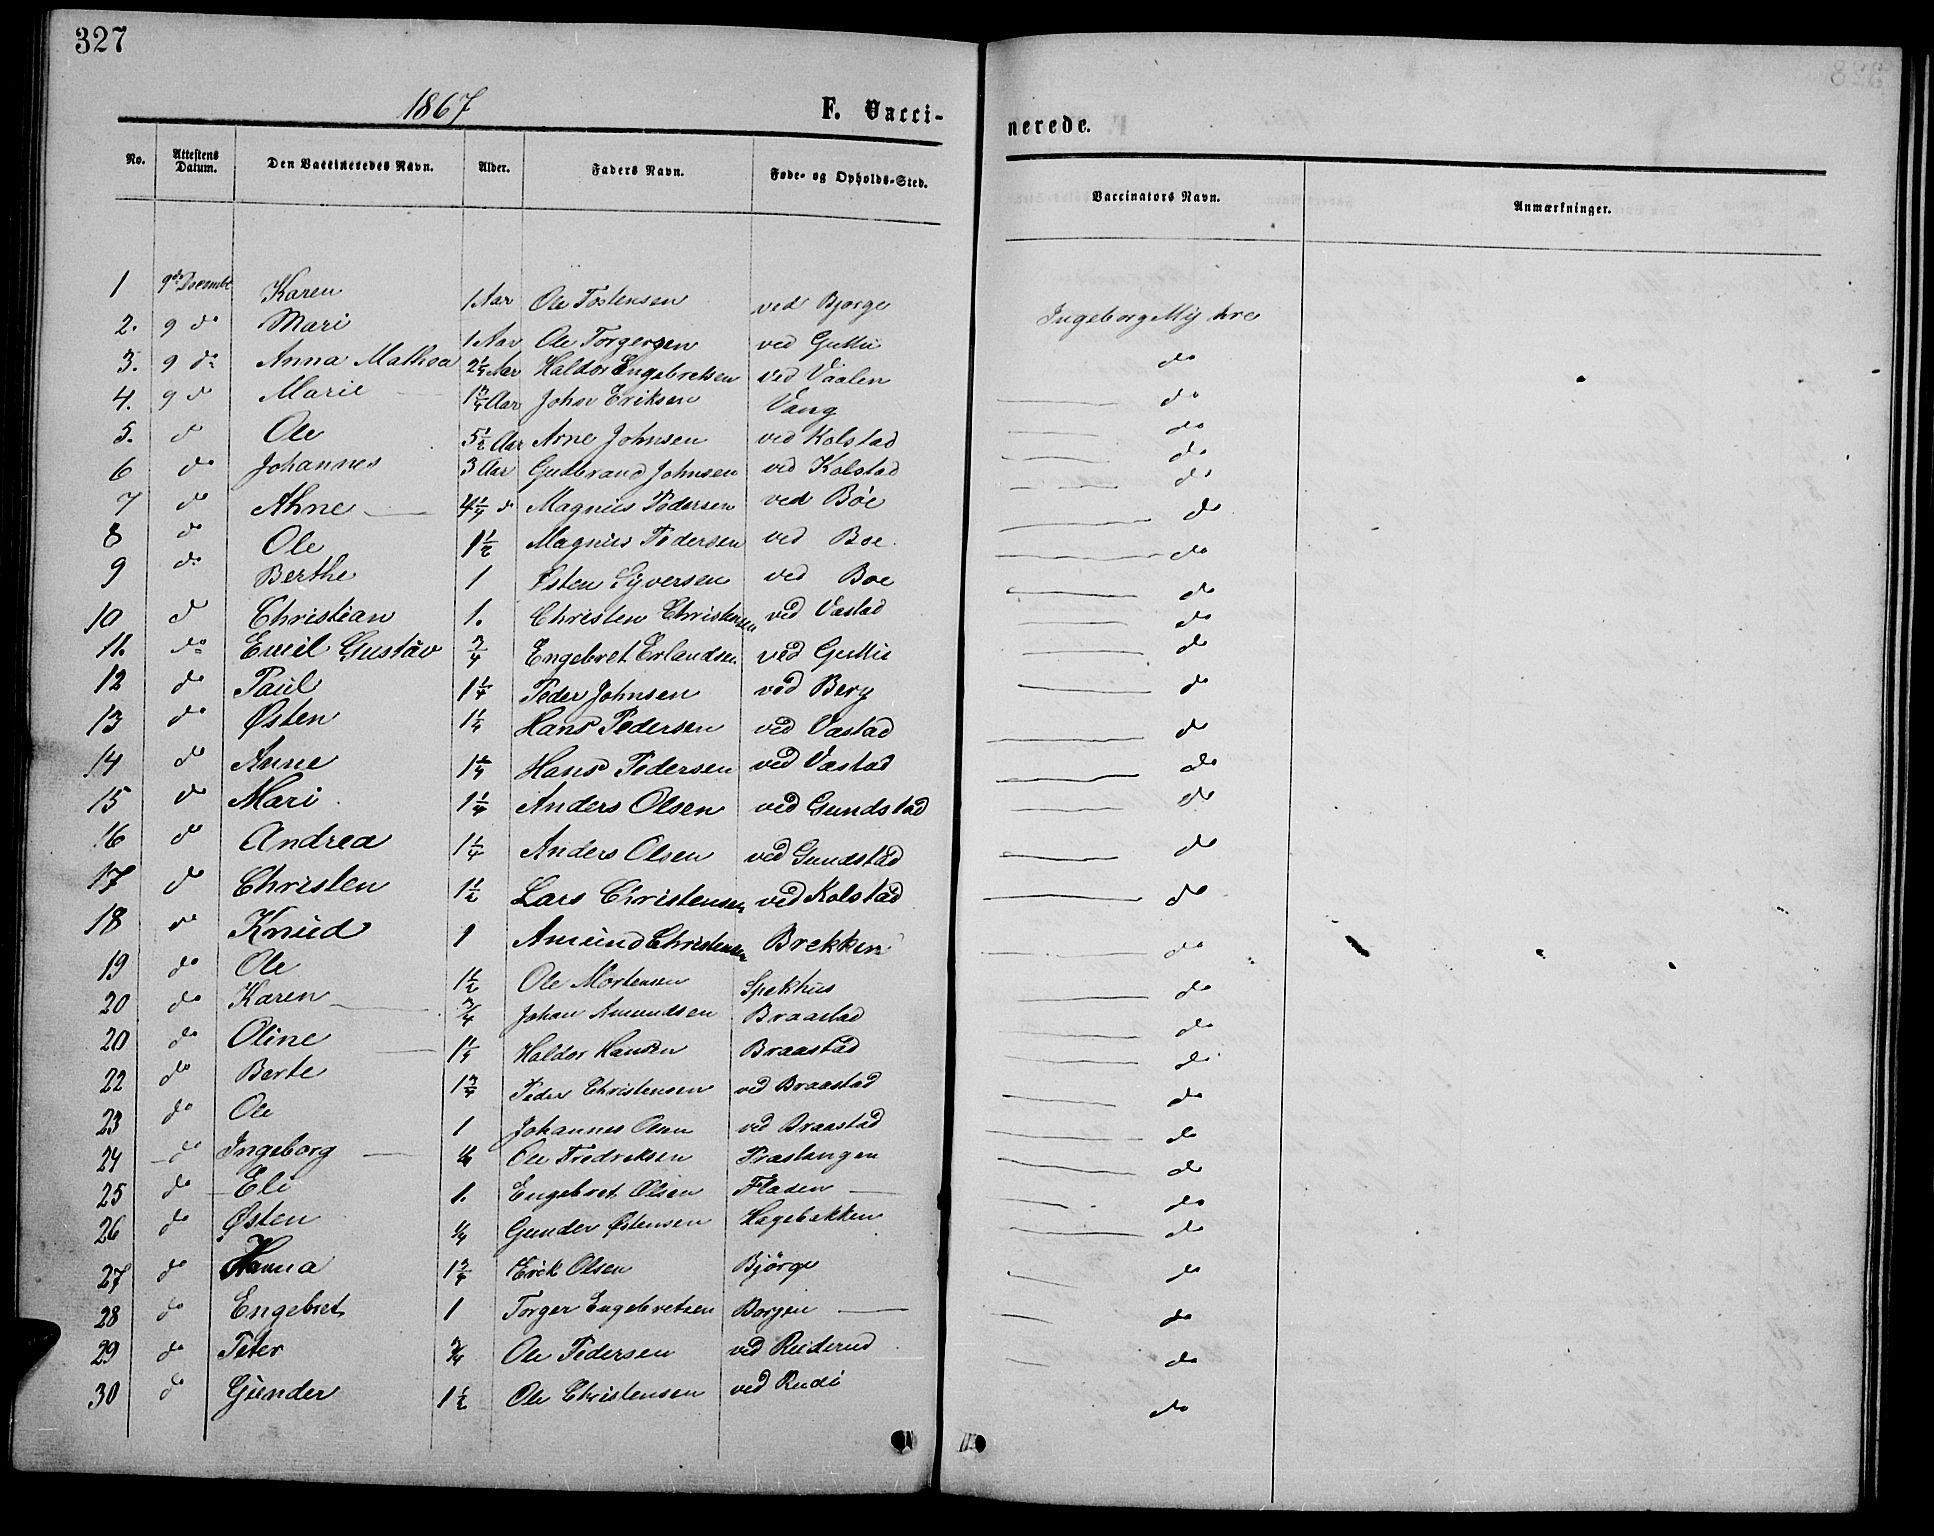 327
1867
F. Vacci-
nerede.
No. Attestens Datum. Den Vaccineredes Navn. Alder. Faders Navn. Føde- og Opholds-Sted. Vaccinators Navn. Anmærkninger.
1 9de Decembr Karen 1 Aar Ole Tostensen ved Bjorge Ingeborg Myhre
2. 9 do Mari 1 Aar Ole Torgersen ved Guttu do
3. 9 do Anna Mathea 2 1/4 Aar Haldor Engebretsen ved Vaalen do
4. 9 do Marie 1 3/4 Aar John Eriksen Vang do
5. do Ole 5 1/2 Aar Arne Johnsen ved Kolstad do
6 do Johannes 3 Aar Gudbrand Johnsen ved Kolstad do
7 do Ahne 4 1/4 do Magnus Pedersen ved Bøe do
8 do Ole 1 1/2 Magnus Pedersen ved Boe do
9 do Berthe 1 Østen Syversen ved Boe do
10 do Christian 1. Christen Christensen ved Vastad do
11. do Emil Gustav 3/4 Engebret Erlandsen ved Guttu do
12 do Paul 1 1/4 Peder Johnsen ved Berg do
13 do Østen 1 1/4 Hans Pedersen ved Vastad do
14 do Anne 1 1/4 Hans Pedersen ved Vastad do
15 do Mari 1 1/4 Anders Olsen ved Gundstad do
16 do Andrea 1 1/4 Anders Olsen ved Gundstad do
17 do Christen 1 1/2 Lars Christensen ved Kolstad do
18 do Knud 1 Amund Christensen Brekken do
19 do Ole 1 1/2 Ole Mortensen Spekhus do
20 do Karen 3/4 Johan Amundsen Braastad do
20 do Oline 1 1/4 Haldor Hansen Braastad do
22 do Berte 1 3/4 Peder Christensen ved Braastad do
23 do Ole 1 Johannes Olsen ved Braastad do
24 do Ingeborg 1/4 Ole Fredreksen Præstangen do
25 do Eli 1. Engebret Olsen Fladen do
26 do Østen 1/4 Gunder Østensen Hagebakken do
27 do Hanna 1 3/4 Erik Olsen Bjørge do
28 do Engebret 1 Torger Engebretsen Borgen do
29 do Peter 3/4 Ole Pedersen ved Ruderud do
30 do Gunder 1 1/2 Ole Christensen ved Rudi do